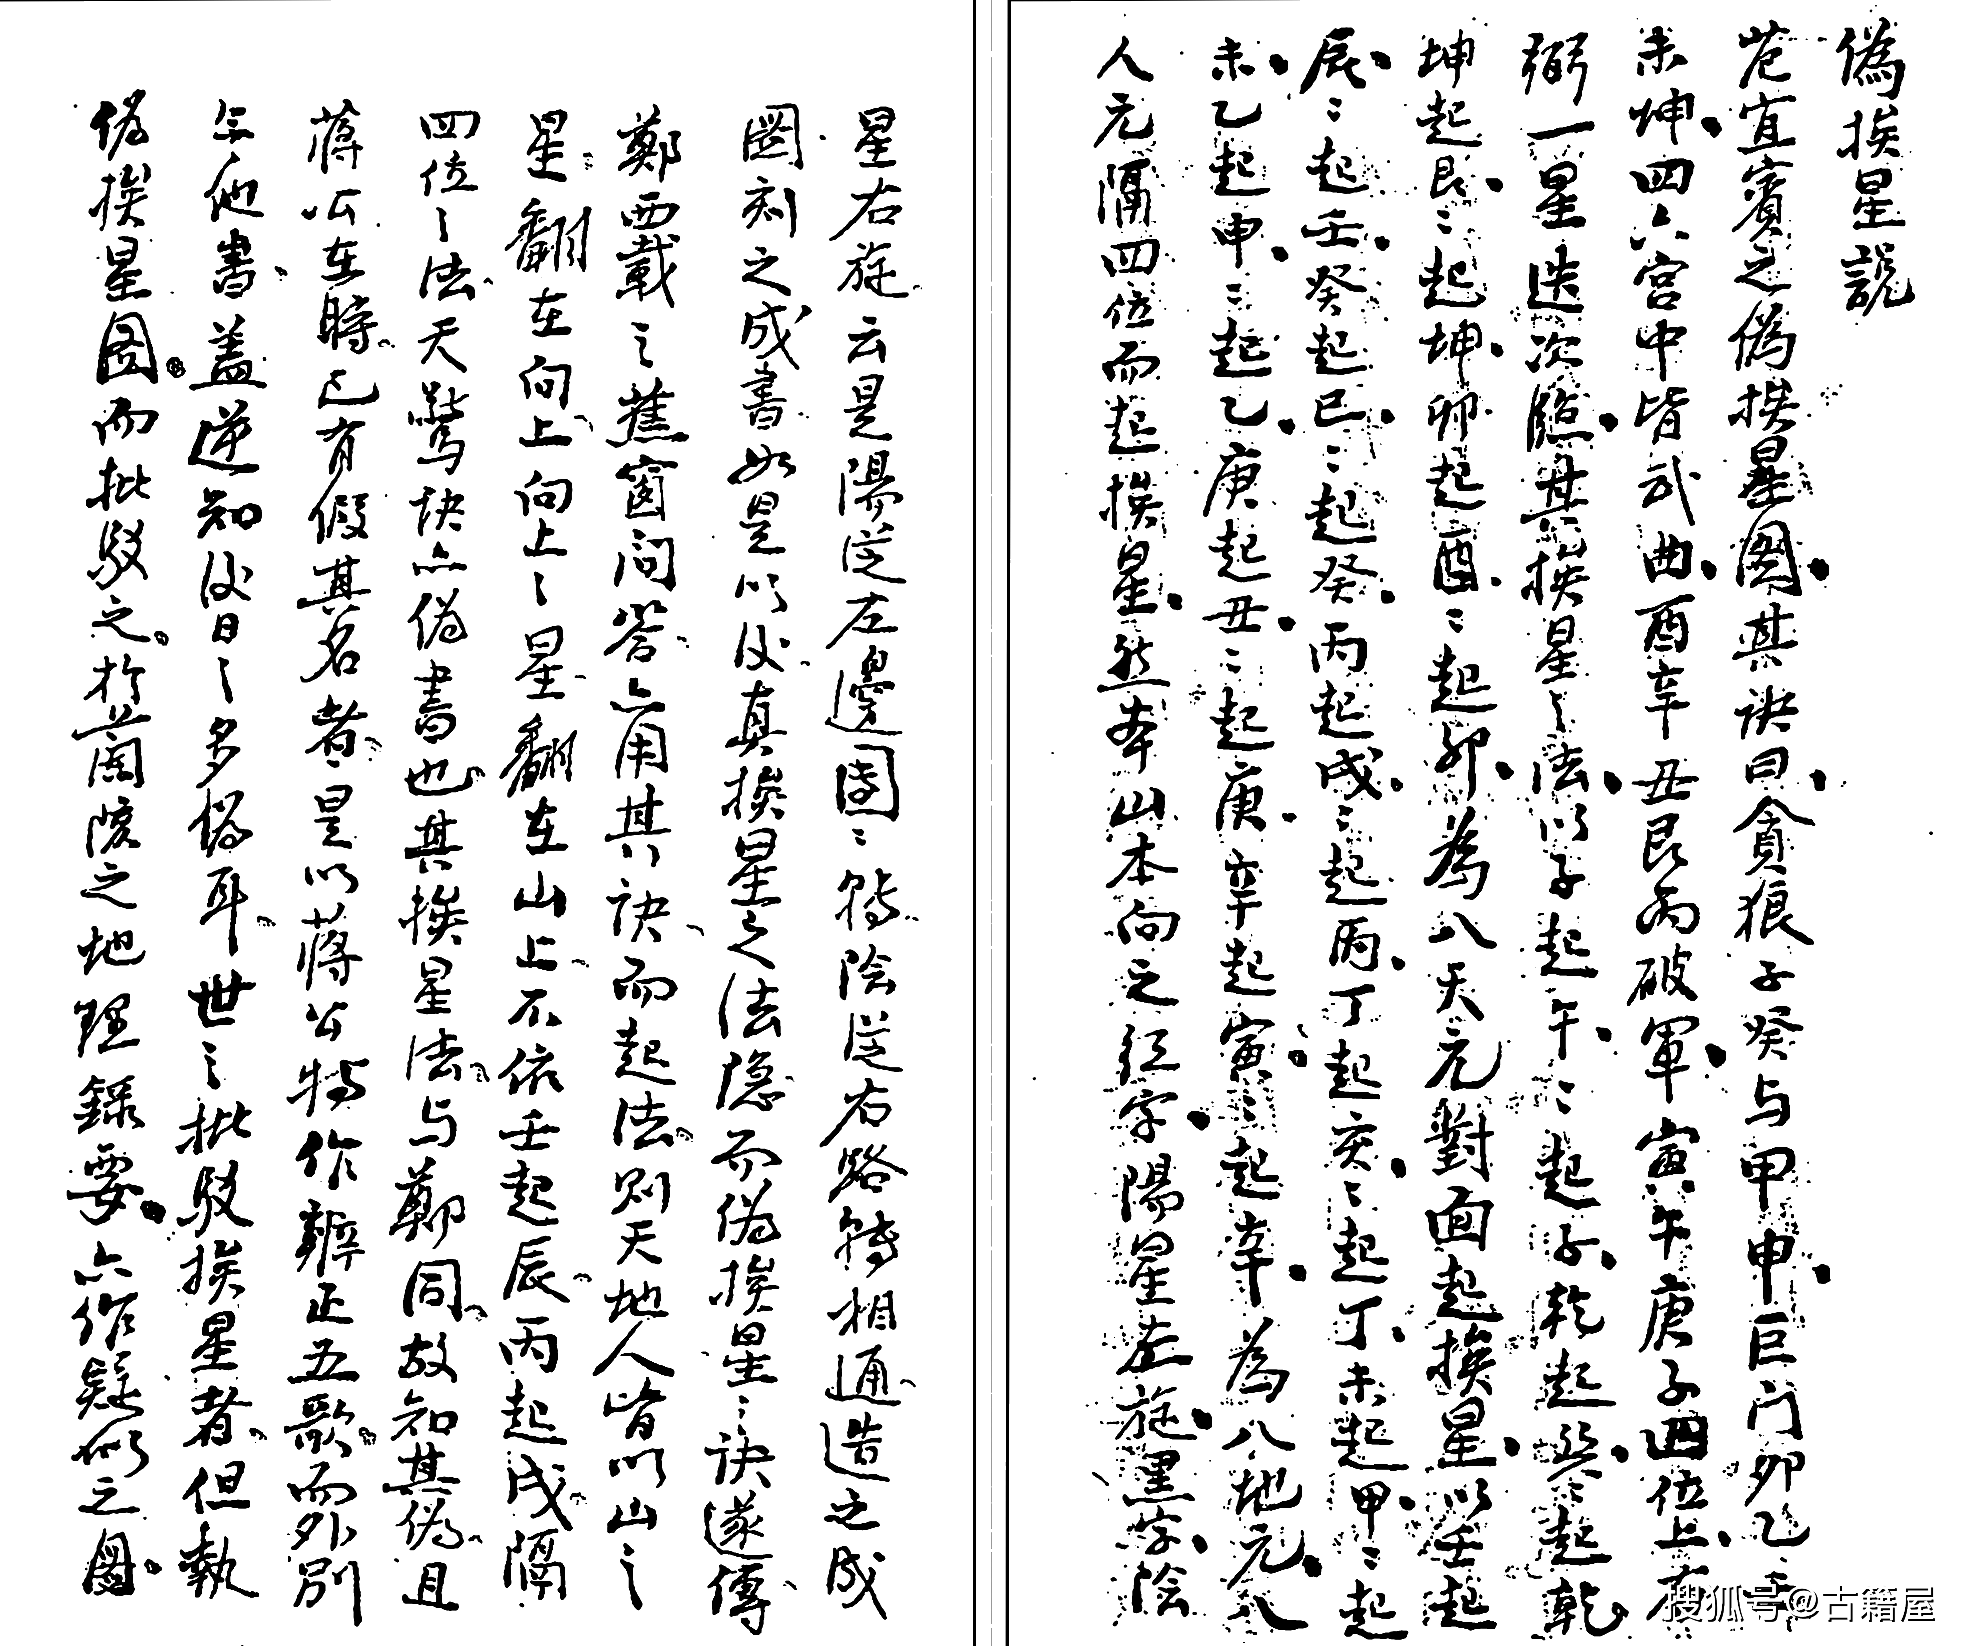 偽挨星説
范宜賓之偽挨星圖其诀曰貪狼子癸与甲申巨门卯乙
未坤四六宮中皆武曲酉辛丑艮丙破軍寅午庚子四位上右
弼一星迭次臨其挨星〻法以子起午〻起子乾起巽〻起乾
坤起艮〻起坤卯起酉〻起卯為八天元對面起挨星以壬起
辰〻起壬癸起巳〻起癸丙起戌〻起丙丁起亥〻起丁未起甲〻起
未乙起申〻起乙庚起丑〻起庚辛起寅〻起辛為八地元八
人元隔四位而起挨星然本山本向之红字陽星左旋黑字陰
星右旋云是陽従左邊團〻轉陰従右路轉相通造之成
圖刻之成書如是以後真挨星之法隐而偽挨星〻诀遂傳
鄭西載〻蕉窗问答六用其诀而起法则天地人皆以山〻
星翻在向上向上〻星翻在山上不依壬起辰丙起戌隔
四位〻法天驚诀亦偽書也其挨星法与鄭同故知其偽且
蒋公在時已有假其名者是以蒋公特作辨正五歌而外別
无他書盖逆知後日〻多偽耳世〻批駁挨星者但執
偽挨星圖而批駁之於蘭陵之地理録要六作疑似之圖
搜狐号@古籍屋